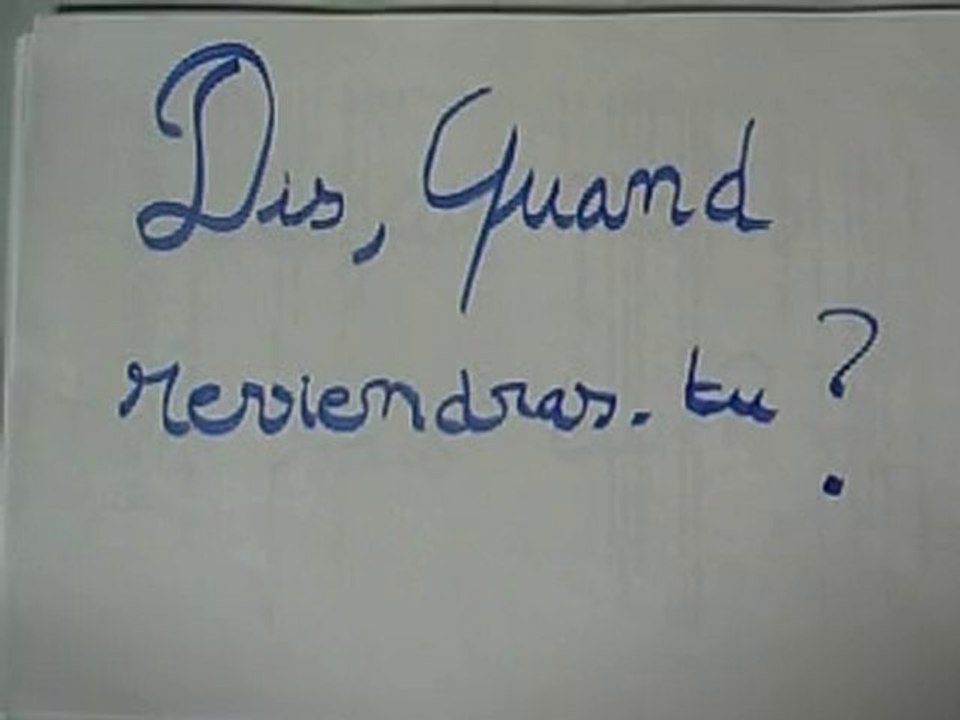 Dis, Quand
reviendras-tu ?